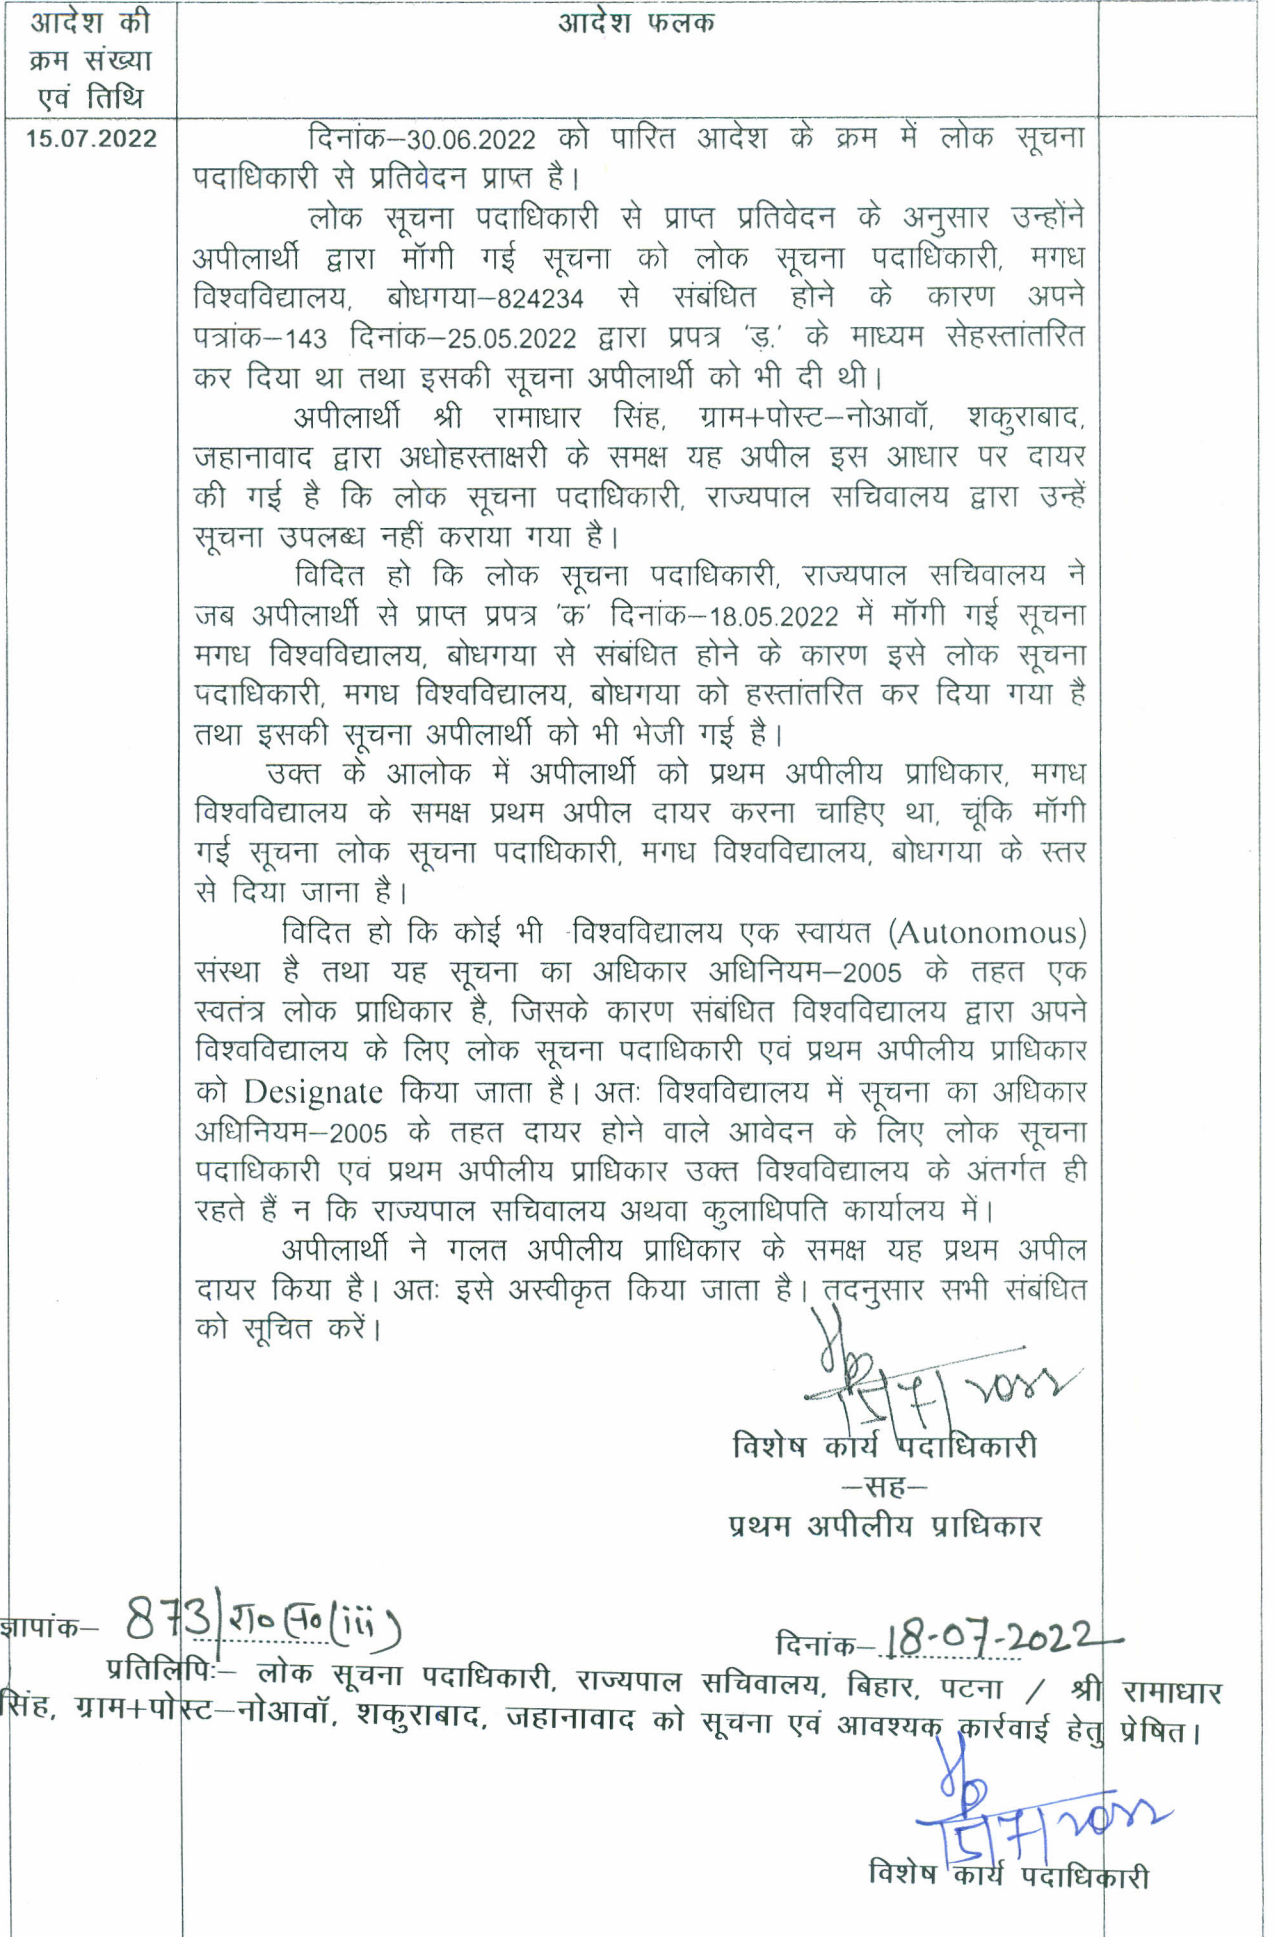 आदेश की
क्रम संख्या
एवं तिथि
आदेश फलक
15.07.2022
दिनांक–30.06.2022 को पारित आदेश के क्रम में लोक सूचना
पदाधिकारी से प्रतिवेदन प्राप्त है।
लोक सूचना पदाधिकारी से प्राप्त प्रतिवेदन के अनुसार उन्होंने
अपीलार्थी द्वारा मॉगी गई सूचना को लोक सूचना पदाधिकारी, मगध
विश्वविद्यालय, बोधगया–824234 से संबंधित होने के कारण अपने
पत्रांक–143 दिनांक–25.05.2022 द्वारा प्रपत्र 'ड़.' के माध्यम सेहस्तांतरित
कर दिया था तथा इसकी सूचना अपीलार्थी को भी दी थी।
अपीलार्थी श्री रामाधार सिंह, ग्राम+पोस्ट–नोआवॉ, शकुराबाद,
जहानावाद द्वारा अधोहस्ताक्षरी के समक्ष यह अपील इस आधार पर दायर
की गई है कि लोक सूचना पदाधिकारी, राज्यपाल सचिवालय द्वारा उन्हें
सूचना उपलब्ध नहीं कराया गया है।
विदित हो कि लोक सूचना पदाधिकारी, राज्यपाल सचिवालय ने
जब अपीलार्थी से प्राप्त प्रपत्र 'क' दिनांक–18.05.2022 में मॉगी गई सूचना
मगध विश्वविद्यालय, बोधगया से संबंधित होने के कारण इसे लोक सूचना
पदाधिकारी, मगध विश्वविद्यालय, बोधगया को हस्तांतरित कर दिया गया है
तथा इसकी सूचना अपीलार्थी को भी भेजी गई है।
उक्त के आलोक में अपीलार्थी को प्रथम अपीलीय प्राधिकार, मगध
विश्वविद्यालय के समक्ष प्रथम अपील दायर करना चाहिए था, चूंकि मॉगी
गई सूचना लोक सूचना पदाधिकारी, मगध विश्वविद्यालय, बोधगया के स्तर
से दिया जाना है।
विदित हो कि कोई भी विश्वविद्यालय एक स्वायत (Autonomous)
संस्था है तथा यह सूचना का अधिकार अधिनियम–2005 के तहत एक
स्वतंत्र लोक प्राधिकार है, जिसके कारण संबंधित विश्वविद्यालय द्वारा अपने
विश्वविद्यालय के लिए लोक सूचना पदाधिकारी एवं प्रथम अपीलीय प्राधिकार
को Designate किया जाता है। अतः विश्वविद्यालय में सूचना का अधिकार
अधिनियम–2005 के तहत दायर होने वाले आवेदन के लिए लोक सूचना
पदाधिकारी एवं प्रथम अपीलीय प्राधिकार उक्त विश्वविद्यालय के अंतर्गत ही
रहते हैं न कि राज्यपाल सचिवालय अथवा कुलाधिपति कार्यालय में।
अपीलार्थी ने गलत अपीलीय प्राधिकार के समक्ष यह प्रथम अपील
दायर किया है। अतः इसे अस्वीकृत किया जाता है। तदनुसार सभी संबंधित
को सूचित करें।
विशेष कार्य पदाधिकारी
–सह–
प्रथम अपीलीय प्राधिकार
ज्ञापांक– 873/रा०स०(iii)
दिनांक–18-07-2022
प्रतिलिपिः– लोक सूचना पदाधिकारी, राज्यपाल सचिवालय, बिहार, पटना / श्री रामाधार
सिंह, ग्राम+पोस्ट–नोआवॉ, शकुराबाद, जहानावाद को सूचना एवं आवश्यक कार्रवाई हेतु प्रेषित।
विशेष कार्य पदाधिकारी